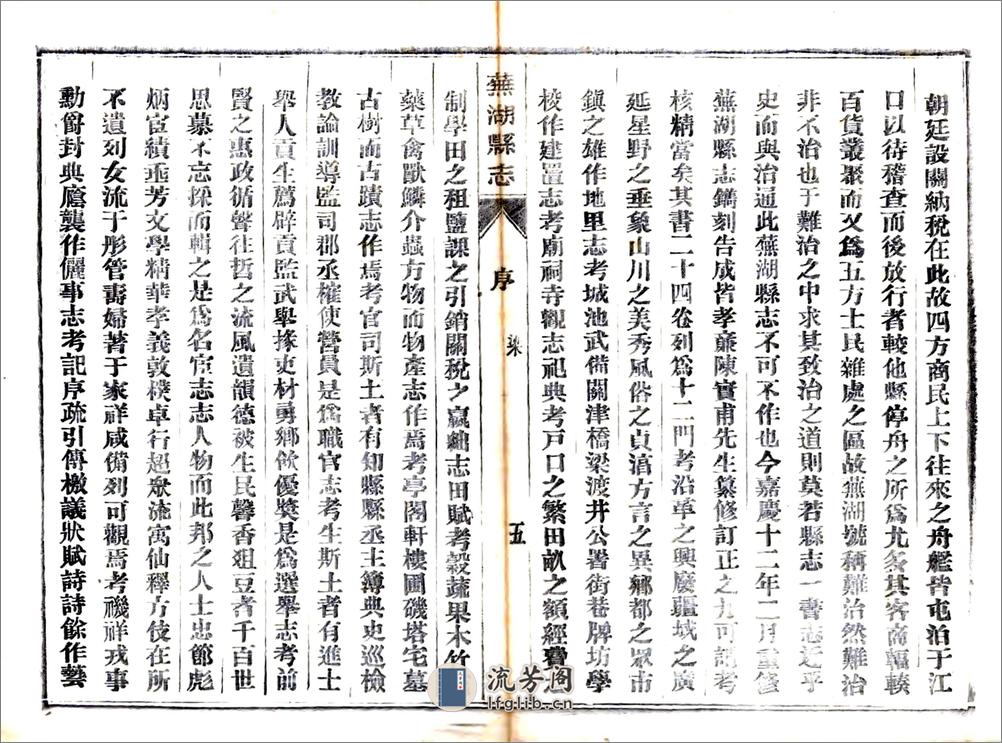 朝廷設關納稅在此故四方商民上下往來之舟艦皆屯泊于江
口以待稽查而後放行者較他縣停舟之所爲尤多其客商輻輳
百貨叢聚而又爲五方士民雜處之區故蕪湖號稱難治然難治
非不治也于難治之中求其致治之道則莫若縣志一書志近乎
史而與治通此蕪湖縣志不可不作也今嘉慶十二年二月重修
蕪湖縣志鐫刻告成皆孝廉陳實甫先生纂修訂正之力可謂考
核精當矣其書二十四卷列爲十二門考沿革之興廢疆域之廣
延星野之垂象山川之美秀風俗之貞淫方言之異鄉都之眾市
鎮之雄作地里志考城池武備關津橋梁渡井公署街巷牌坊學
校作建置志考廟祠寺觀志祀典考戸口之繁田畝之額經費
蕪湖縣志
序
柒
五
制學田之租鹽課之引銷關稅之贏紬志田賦考穀蔬果木竹
藥草禽獸鱗介蟲方物而物產志作焉考亭閣軒樓圃磯塔宅墓
古樹而古蹟志作焉考官司斯土者有知縣縣丞主簿典史巡檢
教諭訓導監司郡丞榷使營員是爲職官志考生斯土者有進士
舉人貢生薦辟貢監武舉掾吏材勇鄉飲優獎是爲選舉志考前
賢之惠政循聲往哲之流風遺韻德被生民馨香俎豆者千百世
思慕不忘採而輯之是爲名宦志志人物而此邦之人士忠節彪
炳宦績垂芳文學精華孝義敦樸卓行超眾流寓仙釋方伎在所
不遺列女流于彤管壽婦著于家祥咸備列可觀焉考禨祥戎事
勳爵封典廕襲作儷事志考記序疏引傳檄議狀賦詩詩餘作藝
流芳閣
lfglib.cn